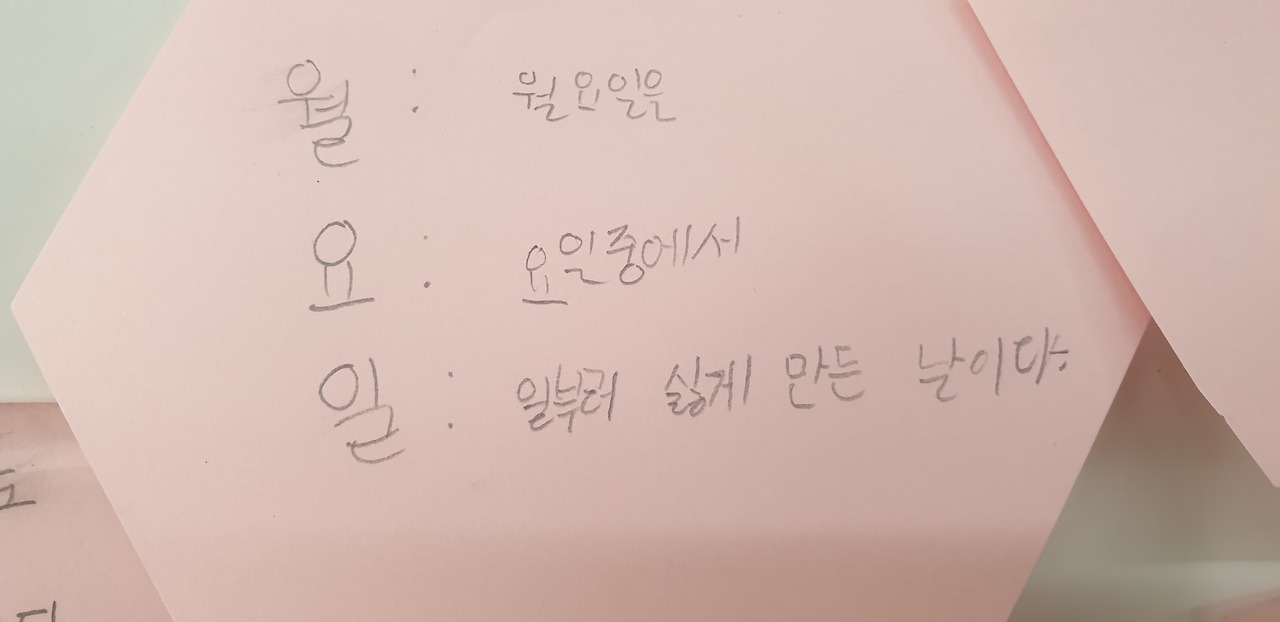 월 : 월요일은
요 : 요일중에서
일 : 일부러 싫게 만든 날이다.